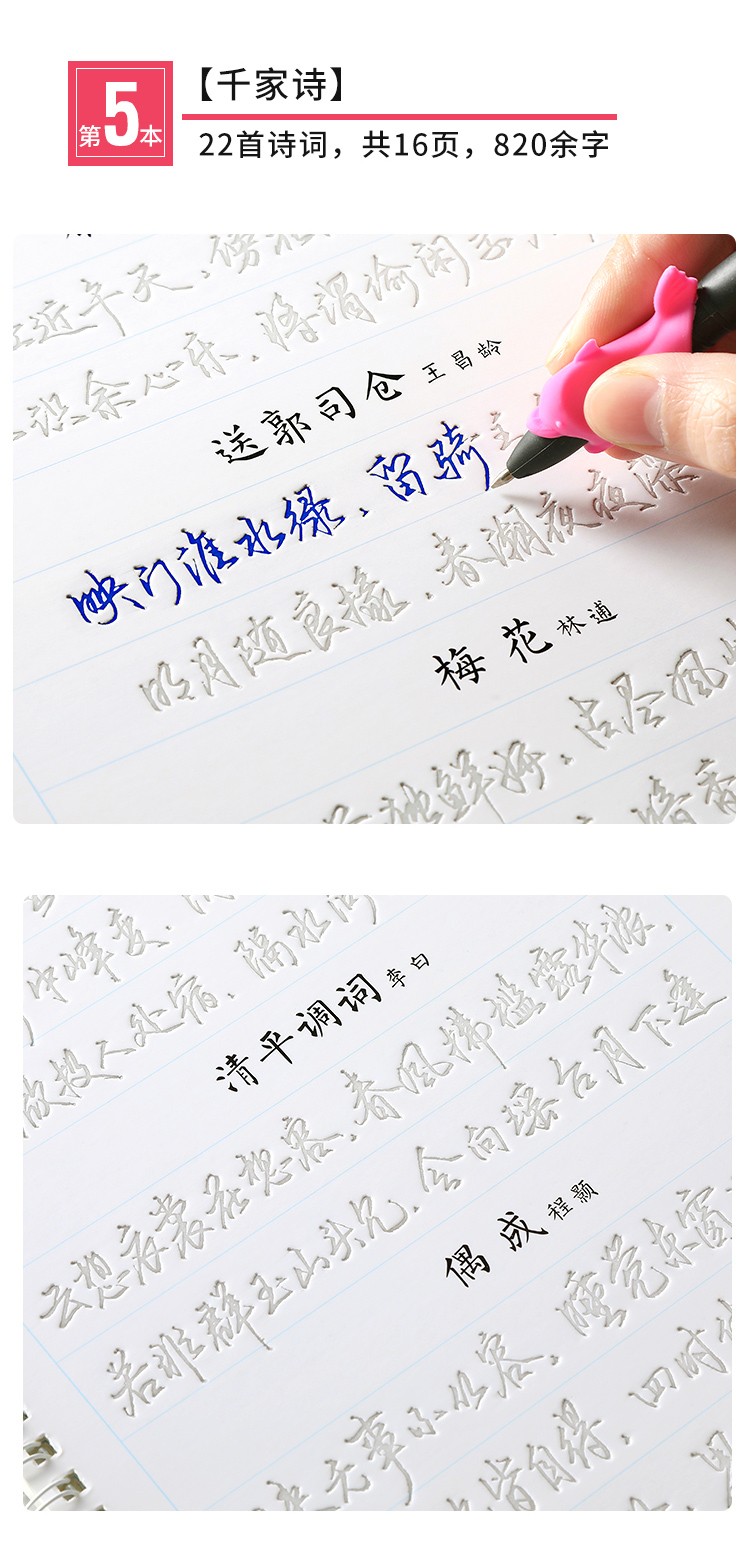 第5本
【千家诗】
22首诗词，共16页，820余字
近午天，傍
识余心乐，将谓偷闲学
送郭司仓 王昌龄
映门淮水绿，留骑主
明月随良掾，春潮夜夜深
梅花 林逋
鲜妍，占尽风
暗香
中峰变，
欲投人处宿，隔水问
清平调词 李白
云想衣裳花想容，春风拂槛露华浓，
若非群玉山头见，会向瑶台月下逢
偶成 程颢
来无事不从容，睡觉东窗
皆自得，四时